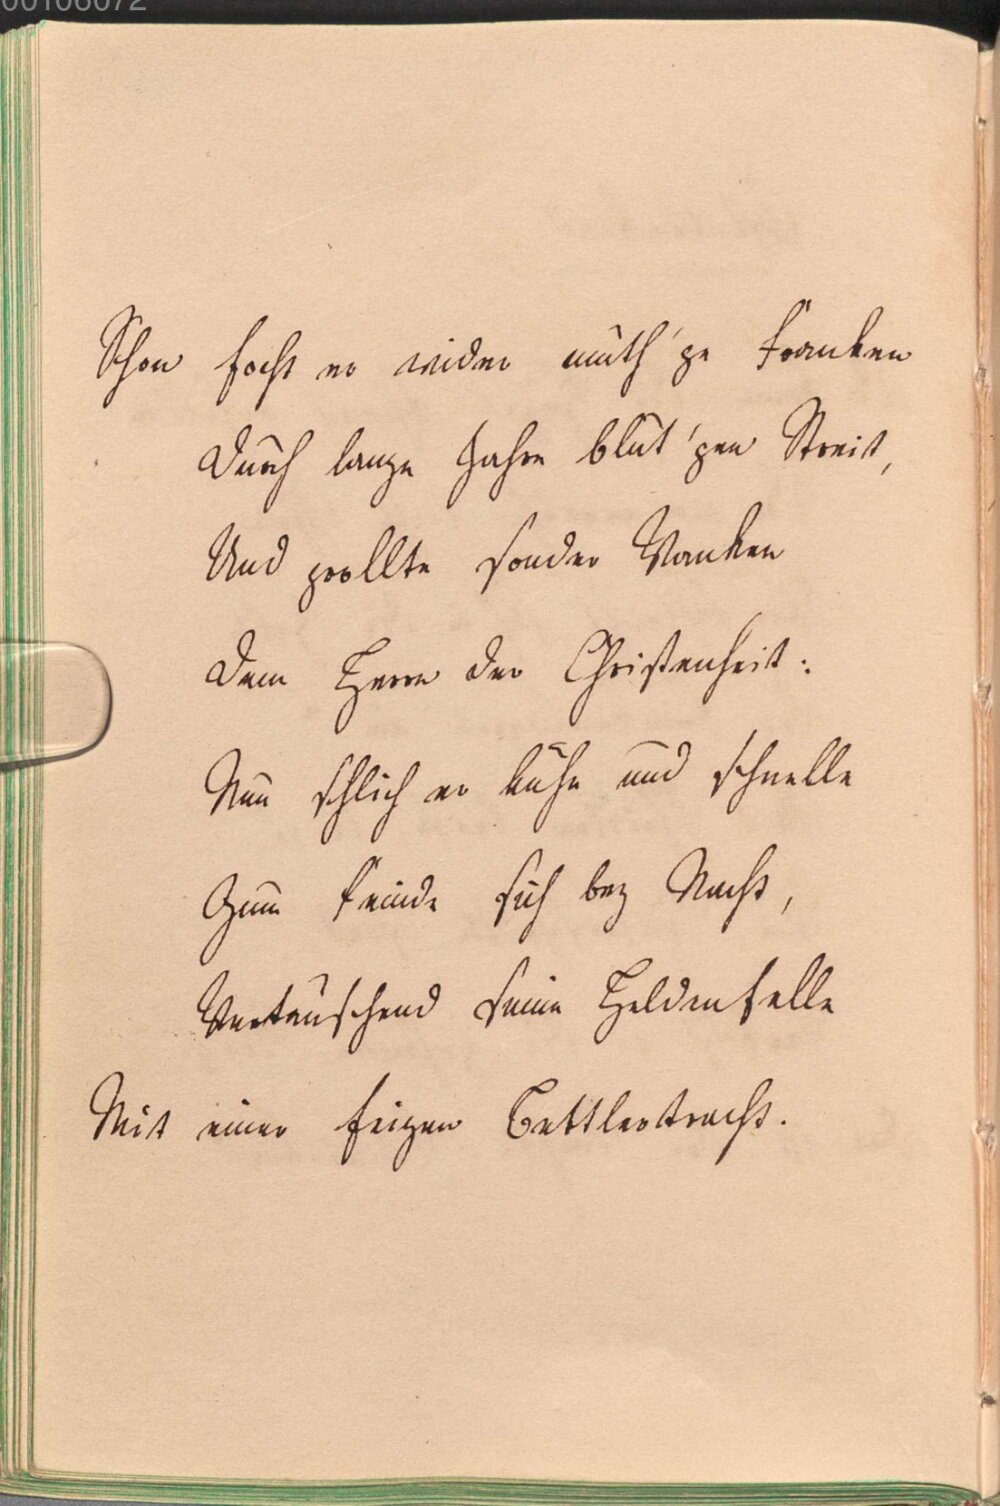 00106072
Schon focht er wider muth'ge Franken
Durch lange Jahre blut'gen Streit,
Und grollte sonder Wanken
Dem Herrn der Christenheit:
Nun schlich er kühn und schnelle
Zum Feinde sich bey Nacht,
Vertauschend seine Heldenfelle
Mit einer feigen Bettlertracht.